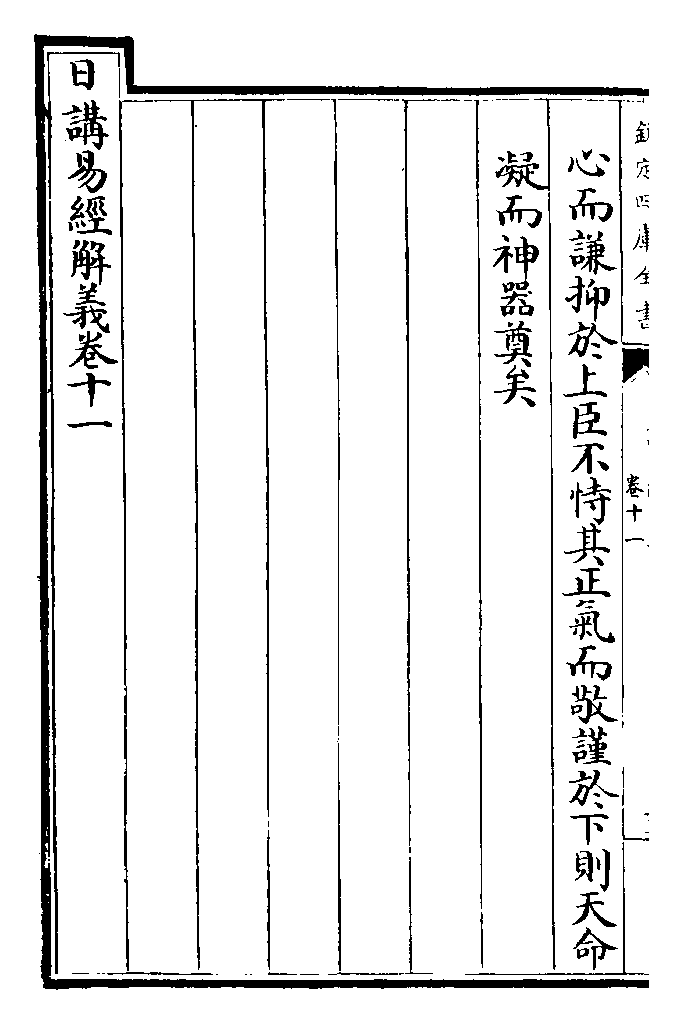 欽定四庫全書
卷十一
心而謙抑於上臣不恃其正氣而敬謹於下則天命
凝而神器奠矣
日講易經解義卷十一